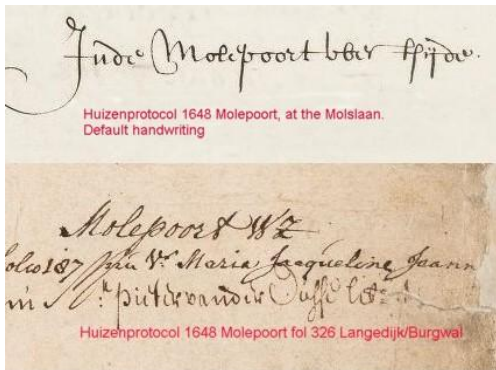 Jnde Molepoort bber thsijde.
Huizenprotocol 1648 Molepoort, at the Molslaan.
Default handwriting
Molepoort WZ
folio 187 Maria Jacqueline Joann
pieter vander
Huizenprotocol 1648 Molepoort fol 326 Langedijk/Burgwal